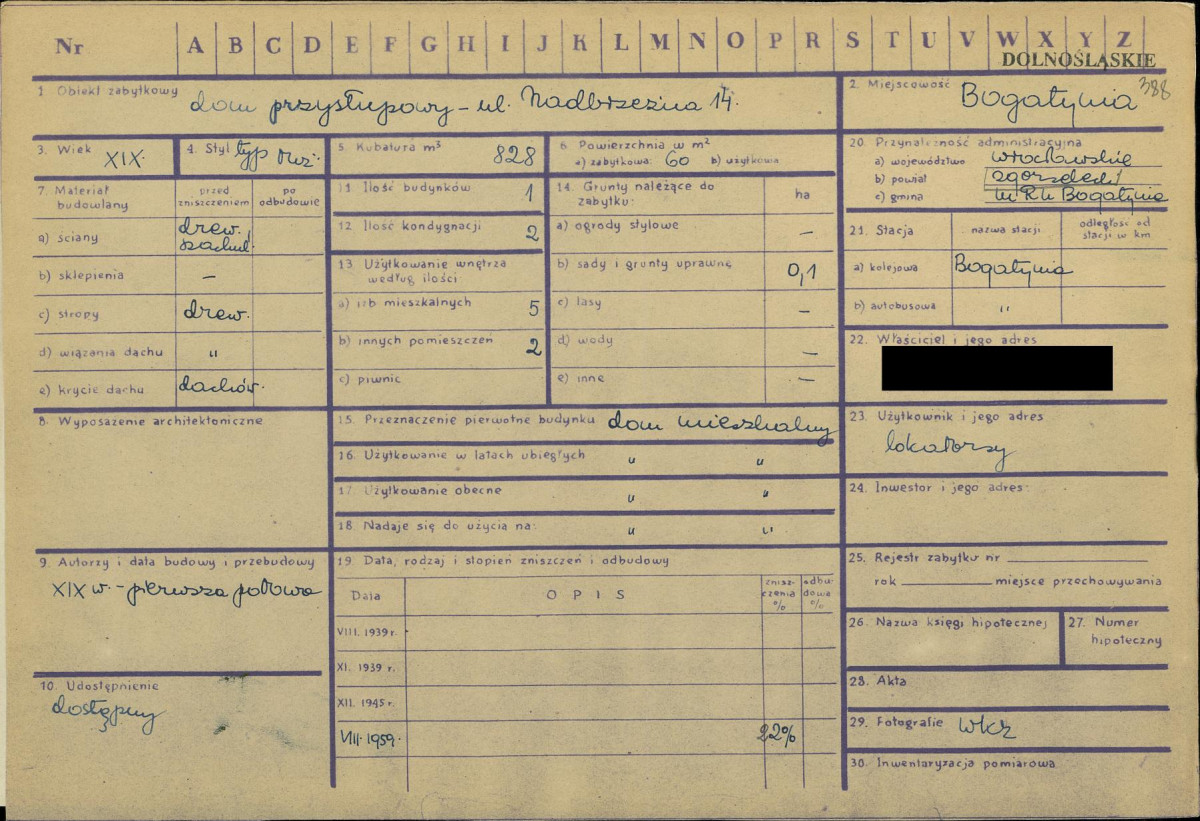 Nr A B C D E F G H I J K L M N O P R S T U V W X Y Z
DOLNOŚLĄSKIE
388
1 Obiekt zabytkowy dom przysłupowy - ul. Nadbrzeżna 14.
2. Miejscowość Bogatynia
3. Wiek XIX.
4. Styl typ łuż.
5. Kubatura m³ 828
6 Powierzchnia w m²
a) zabytkowa: 60 b) użytkowa
7. Materiał budowlany
przed zniszczeniem
po odbudowie
a) ściany drew. szachul.
b) sklepienia —
c) stropy drew.
d) wiązania dachu "
e) krycie dachu dachów.
8. Wyposażenie architektoniczne
9. Autorzy i data budowy i przebudowy
XIX w. - pierwsza połowa
10. Udostępnienie
dostępny
11. Ilość budynków 1
12 Ilość kondygnacji 2
13. Użytkowanie wnętrza
według ilości
a) izb mieszkalnych 5
b) innych pomieszczeń 2
c) piwnic
14. Grunty należące do
zabytku: ha
a) ogrody stylowe —
b) sady i grunty uprawne 0,1
c) lasy —
d) wody —
e) inne —
15. Przeznaczenie pierwotne budynku dom mieszkalny
16. Użytkowanie w latach ubiegłych " "
17. Użytkowanie obecne " "
18. Nadaje się do użycia na: " "
19. Data, rodzaj i stopień zniszczeń i odbudowy
Data OPIS zniszczenia % odbudowa %
VIII. 1939 r.
XI. 1939 r.
XII. 1945 r.
VIII. 1959. 22%
20. Przynależność administracyjna
a) województwo wrocławskie
b) powiat zgorzelecki
c) gmina m R N Bogatynia
21. Stacja nazwa stacji odległość od stacji w km
a) kolejowa Bogatynia
b) autobusowa "
22. Właściciel i jego adres
23. Użytkownik i jego adres
lokatorzy
24. Inwestor i jego adres:
25. Rejestr zabytku nr
rok miejsce przechowywania
26. Nazwa księgi hipotecznej
27. Numer
hipoteczny
28. Akta
29. Fotografie WKZ
30. Inwentaryzacja pomiarowa